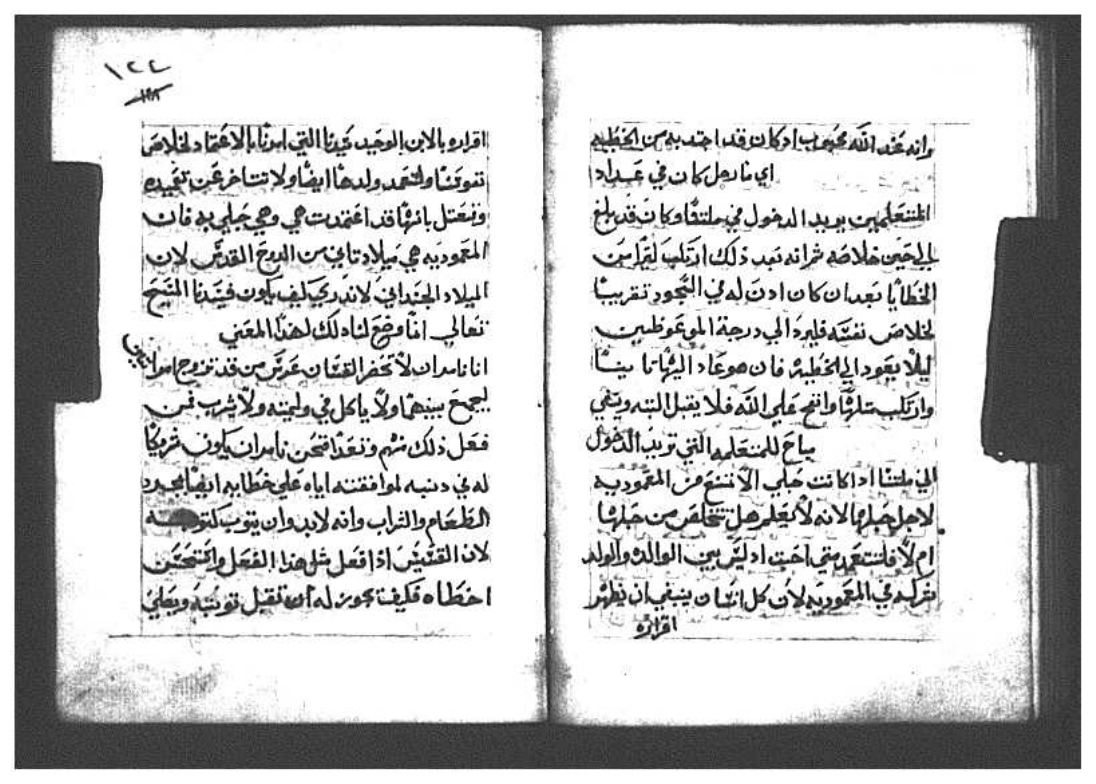 وانه عند الله محبوب اد كان قد اجتد به من الخطيه
اي ما رجل كان في عداد
المتعلمين يريد الدخول في ملتنا وكان قد بلغ
الي حين خلاصه ثم انه بعد ذلك ارتكب لقراس من
الخطايا بعد ان كان ادن له في السجود تقريبا
لخلاص نفسه فليرد الي درجة الموعوظين
ليلا يعود الي الخطيه فان هو عاد اليها تا بينا
وارتكب مثلها وانتج علي الله فلا يقبل البته وينفي
يباح للمتعلمه التي تريد الدخول
الي ملتنا ادا كانت حبلي الا تمتنع من المعموديه
لاجل حبلها لانه لا يعلم هل تتخلص من حبلها
ام لا فلتتعمد متي احبت اد ليس بين الوالده والولد
شركه في المعموديه لان كل انسان ينبغي ان يظهر
اقراره
١٢٤
١٩٨
اقراره بالابن الوحيد سيدنا التي امرنا بالاعتماد لخلاص
نفوسنا ولتعمد ولدها ايضا ولا تتاخر عن تعميده
وتعتل بانها قد اعتمدت هي وهي حبلي به فان
المعموديه هي ميلاد تاني من الروح القدس لان
الميلاد الجسداني لا ندري كيف يكون فسيدنا المسيح
تعالي انما وضع لنا دلك لهدا المعني
اننا نامران لا تحضر القسان عرس من قد تزوج امراتين
ليجمع بينهما ولا ياكل في وليمته ولا يشرب فمن
فعل دلك منهم وتعدا فنحن نامران يكون شريكا
له في دنبه لموافقته اياه علي خطايه ايضا بمجرد
الطعام والشراب وانه لابد وان يتوب كتوبته
لان القسيس ادا فعل مثل هدا الفعل واستحسن
اخطاه فكيف يجوز له ان تقبل توبته ويعطي